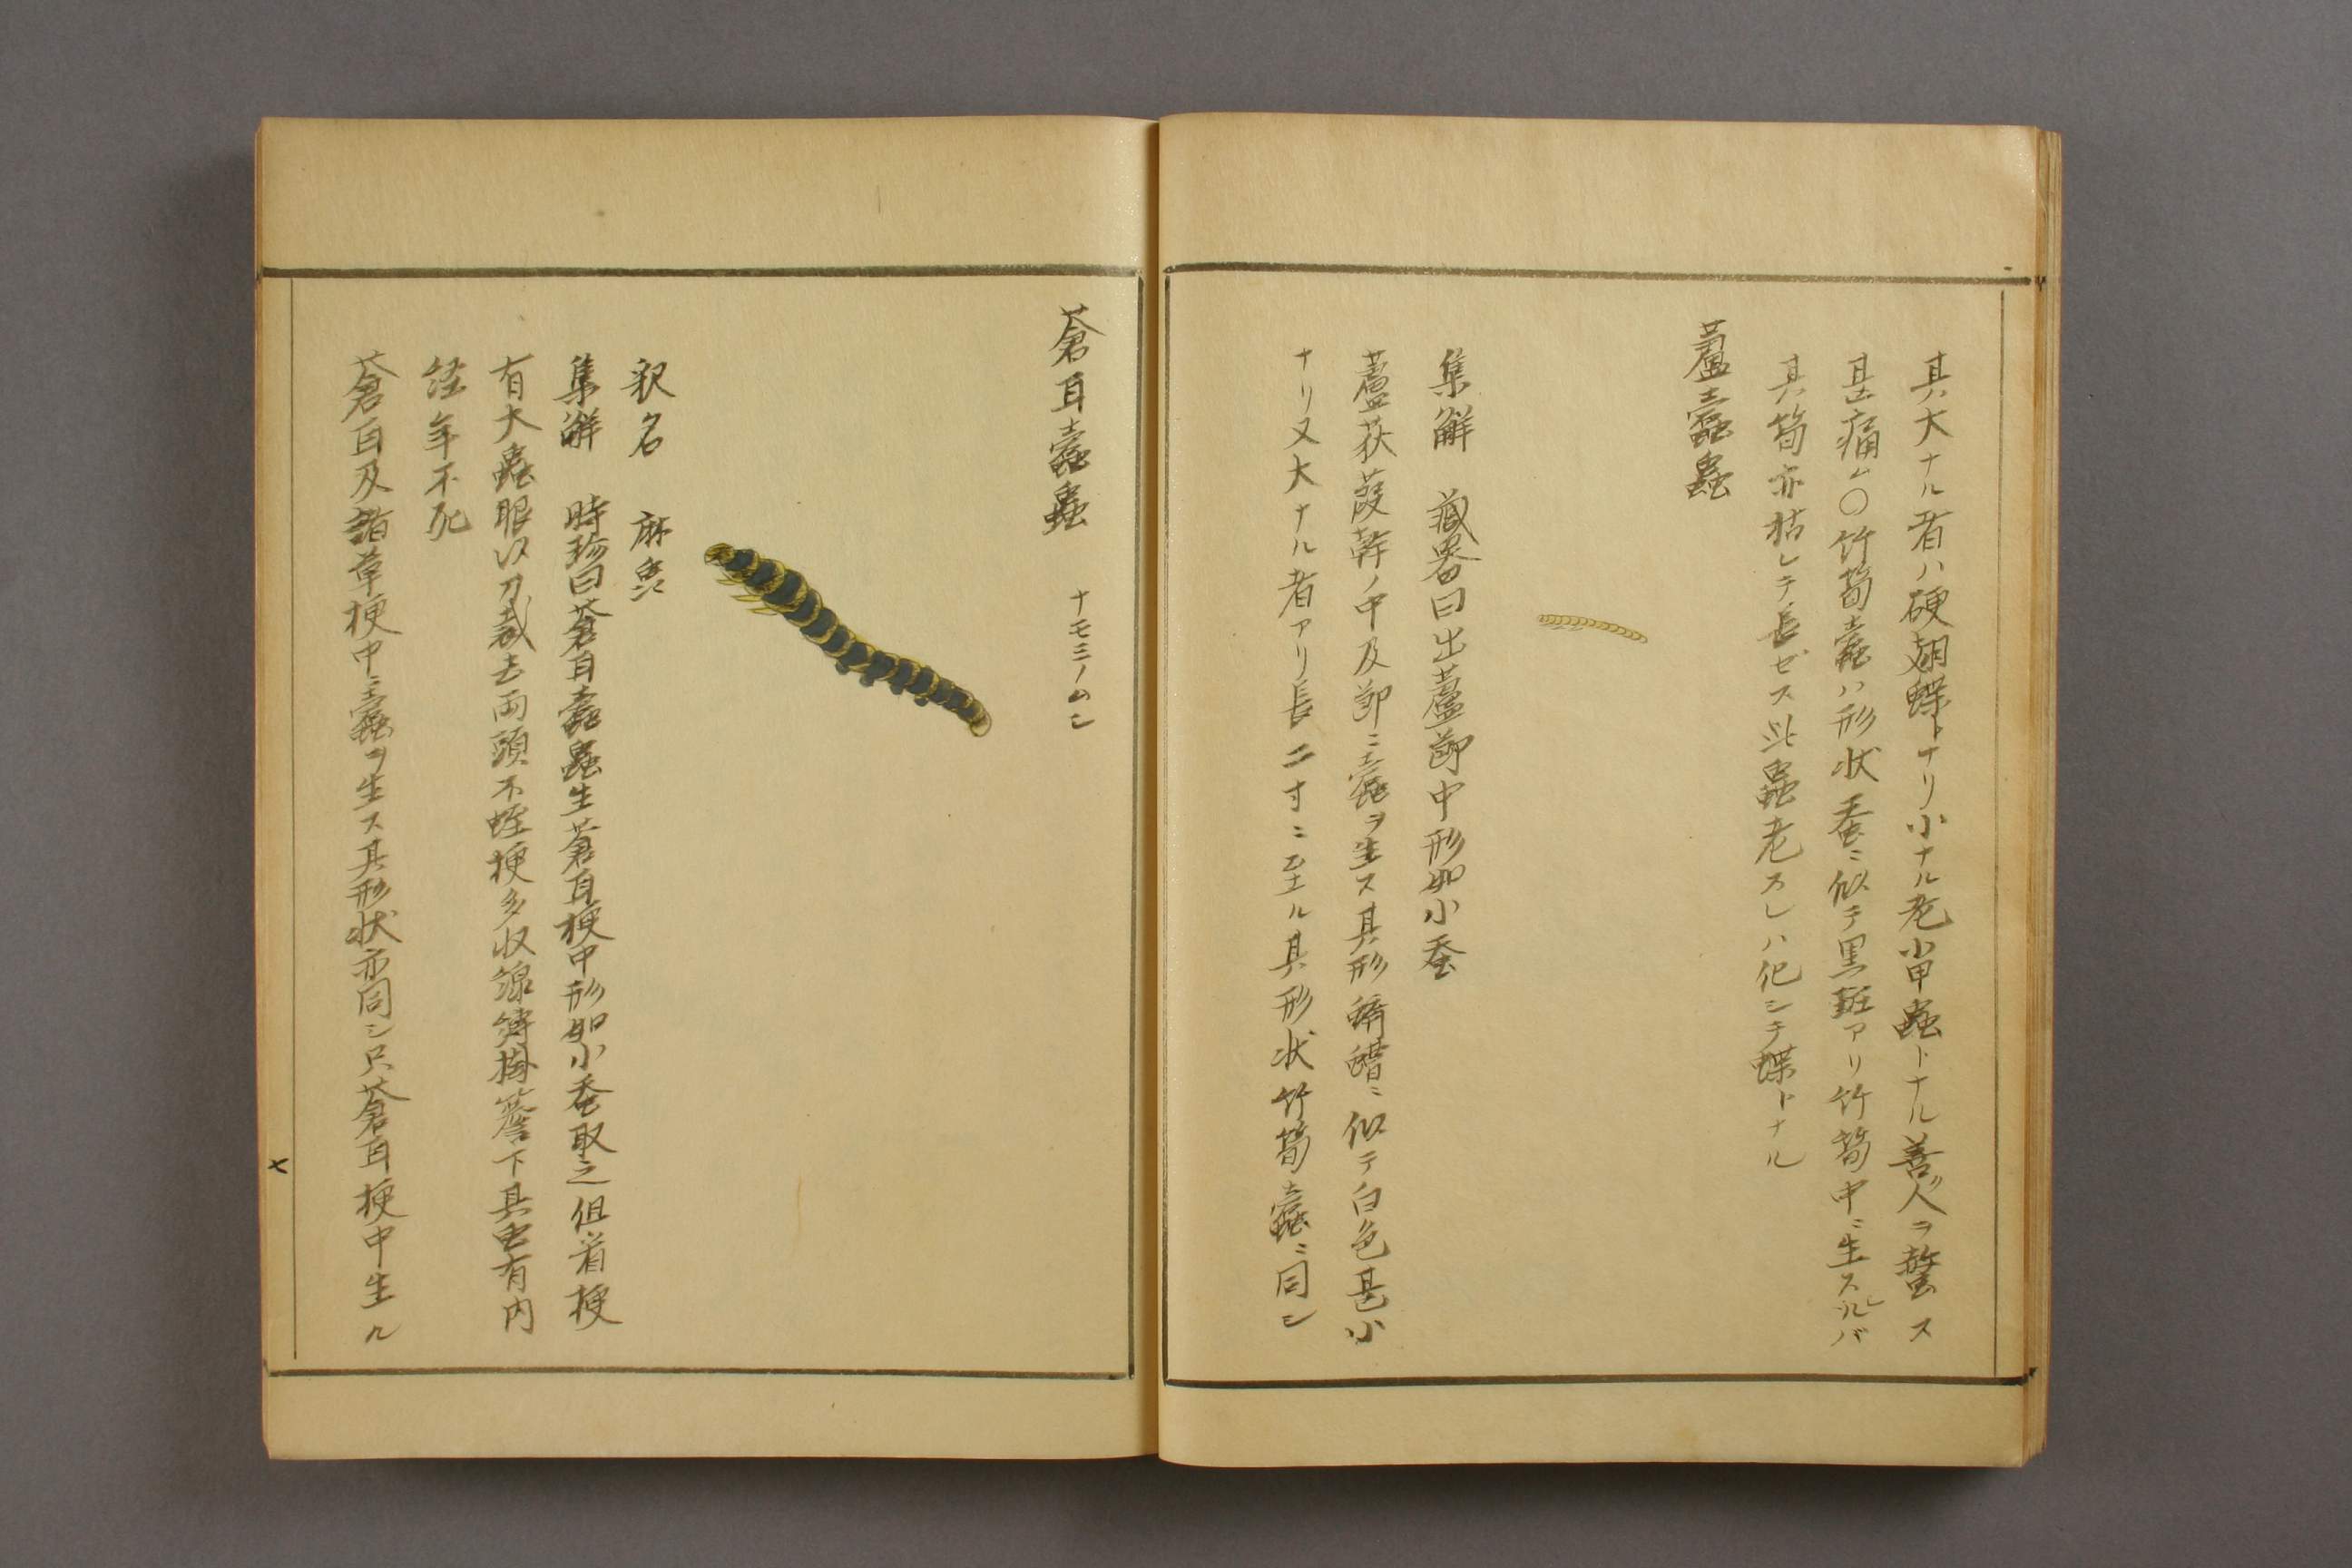 其大ナル者ハ硬翅蝶トナリ小ナル老小甲蟲トナル善ク人ヲ螫ス
甚痛ム〇竹筍蠹ハ形状蚕ニ似テ黒斑アリ竹筍中ニ生スルレバ
其筍亦枯レテ長ゼス此蟲老スレハ化シテ蝶トナル
蘆蠹蟲
集解 藏器曰出蘆節中形如小蚕
蘆荻葭幹ノ中及節ニ蠹ヲ生ス其形蠐螬ニ似テ白色甚小
ナリ又大ナル者アリ長二寸ニ至ル其形状竹筍蠹ニ同シ
蒼耳蠹蟲 ナモミノムシ
釈名 麻虫
集解 時珍曰蒼耳蠹蟲生蒼耳梗中形如小蚕取之但着梗
有大蟲眼以刀截去両頭不蛀梗多收線縛掛簷下其虫有内
経年不死
蒼耳及諸草梗中ニ蠹ヲ生ス其形状亦同シ只蒼耳梗中生ル
七